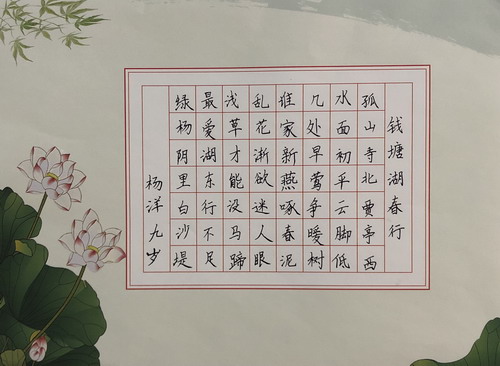 钱塘湖春行
孤山寺北贾亭西
水面初平云脚低
几处早莺争暖树
谁家新燕啄春泥
乱花渐欲迷人眼
浅草才能没马蹄
最爱湖东行不足
绿杨阴里白沙堤
杨洋九岁